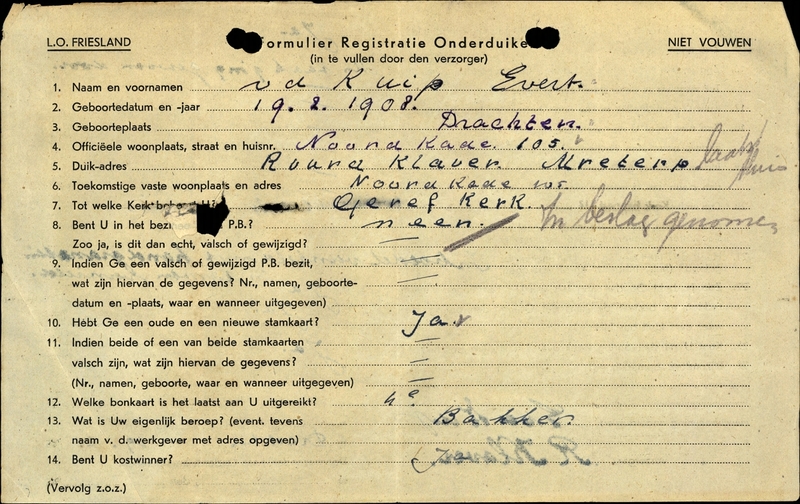 L.O. FRIESLAND
Formulier Registratie Onderduike
NIET VOUWEN
(in te vullen door den verzorger)
1. Naam en voornamen v d Kuip Evert.
2. Geboortedatum en -jaar 19.2.1908.
3. Geboorteplaats Drachten.
4. Officiëele woonplaats, straat en huisnr. Noord Kade 105.
5. Duik-adres Roord Klaver Ureterp
6. Toekomstige vaste woonplaats en adres Noord Kade 105
7. Tot welke Kerk U? Geref Kerk.
8. Bent U in het bezi P.B.? neen. In beslag genomen
Zoo ja, is dit dan echt, valsch of gewijzigd? —
9. Indien Ge een valsch of gewijzigd P.B. bezit, —
wat zijn hiervan de gegevens? Nr., namen, geboorte- —
datum en -plaats, waar en wanneer uitgegeven)
10. Hèbt Ge een oude en een nieuwe stamkaart? Ja
11. Indien beide of een van beide stamkaarten —
valsch zijn, wat zijn hiervan de gegevens? —
(Nr., namen, geboorte, waar en wanneer uitgegeven) —
12. Welke bonkaart is het laatst aan U uitgereikt? 4e
13. Wat is Uw eigenlijk beroep? (event. tevens Bakker
naam v. d. werkgever met adres opgeven)
14. Bent U kostwinner? Ja
(Vervolg z.o.z.)